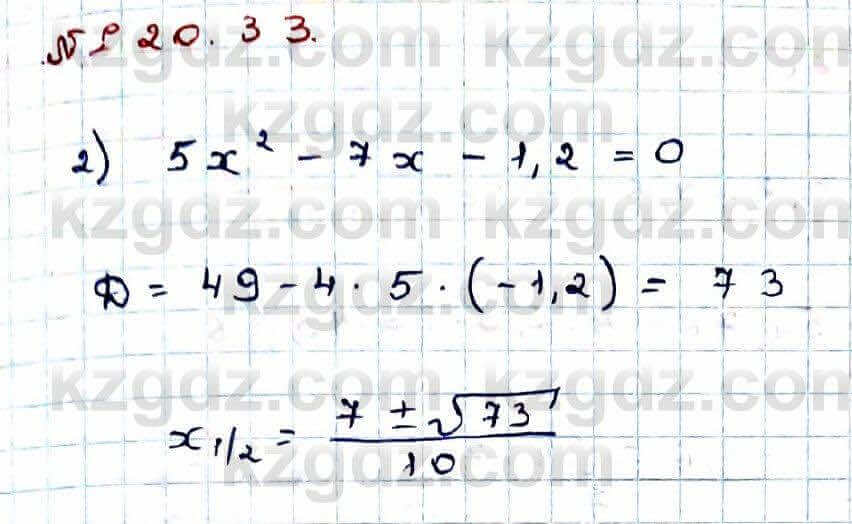 № 20.33.
kzgdz.com kzgdz.com
kzgdz.com
2) 5x² - 7x - 1,2 = 0
kzgdz.com kzgdz.com
D = 49 - 4 · 5 · (-1,2) = 73
kzgdz.com
kzgdz.com kzgdz.com
x₁/₂ = (7 ± √73) / 10
kzgdz.com